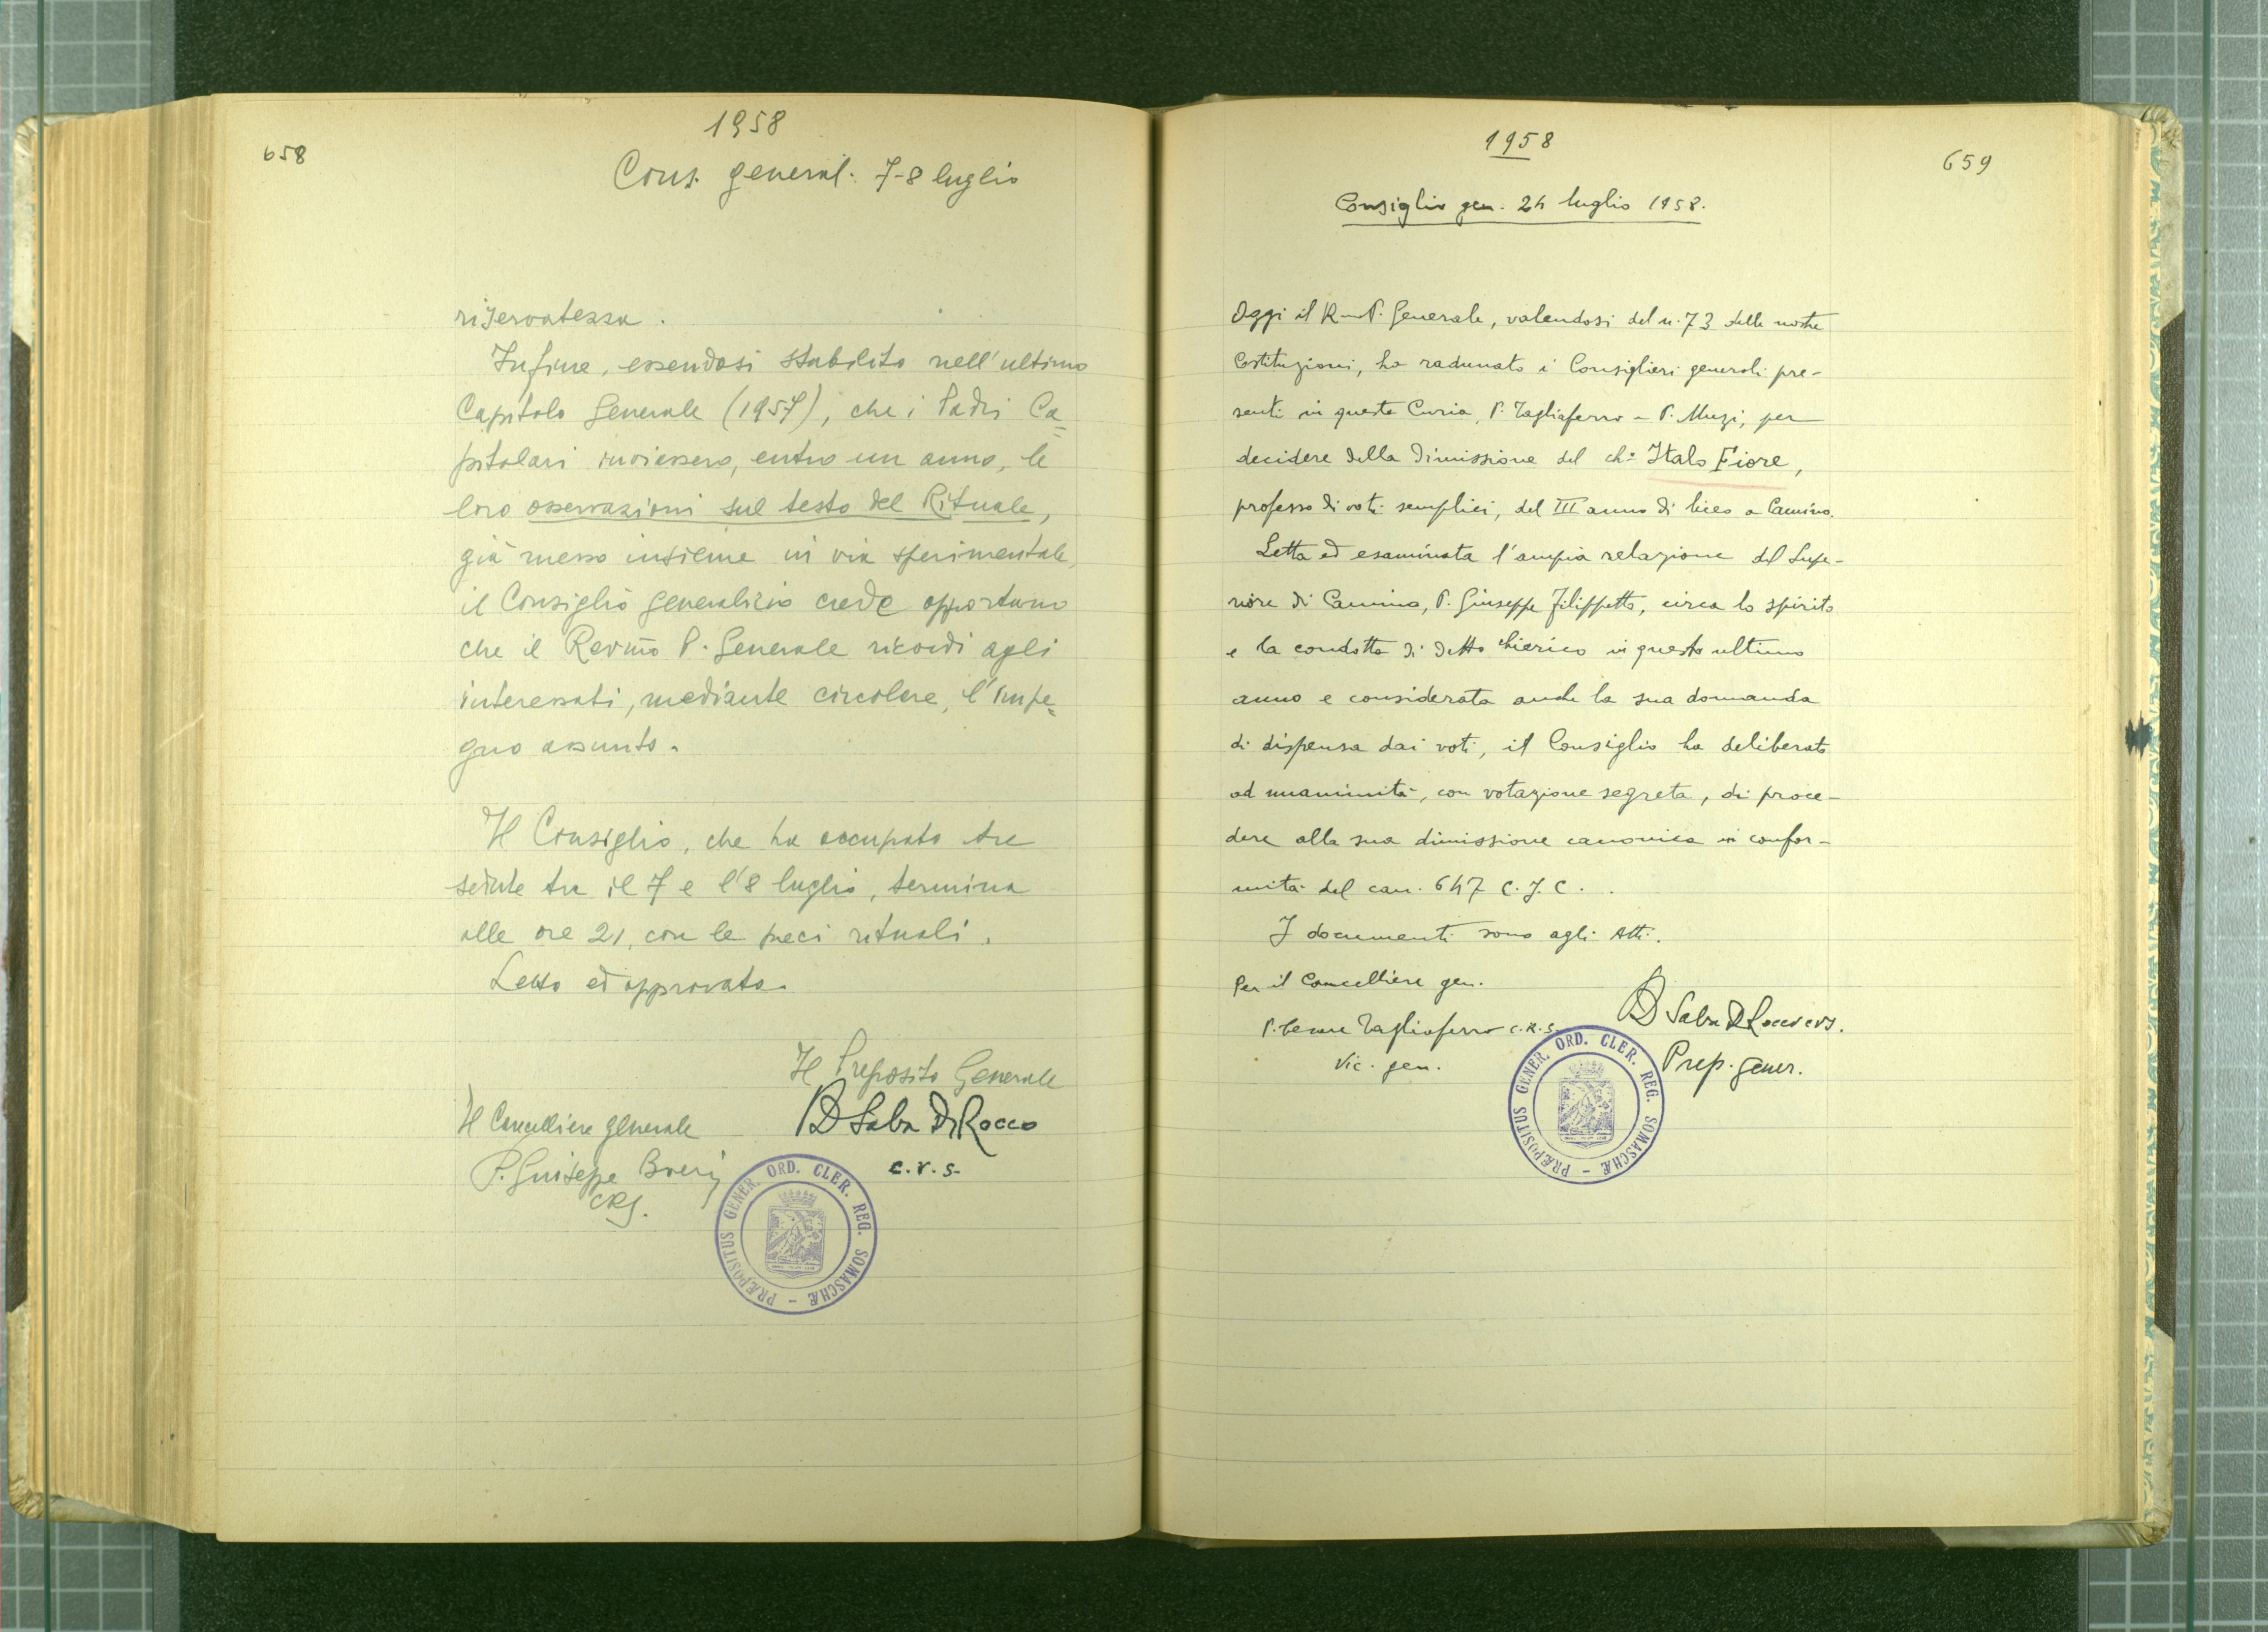 1958
658
Cons. general. 7-8 luglio
riservatezza.
Infine, essendosi stabilito nell'ultimo
Capitolo Generale (1957), che i Padri Ca=
pitolari inviassero, entro un anno, le
loro osservazioni sul testo del Rituale,
già messo insieme in via sperimentale,
il Consiglio generalizio crede opportuno
che il Revmo P. Generale ricordi agli
interessati, mediante circolare, l'impe=
gno assunto.
Il Consiglio, che ha occupato tre
sedute tra il 7 e l'8 luglio, termina
alle ore 21, con le preci rituali.
Letto ed approvato.
Il Preposito Generale
Il Cancelliere generale
D Saba De Rocco
P. Giuseppe Boeri
c.r.s.
CRS.
PRÆPOSITUS GENER. ORD. CLER. REG. SOMASCHÆ -
1958
659
Consiglio gen. 24 luglio 1958.
Oggi il Rmo P. Generale, valendosi del n. 73 delle nostre
Costituzioni, ha radunato i Consiglieri generali pre-
senti in questa Curia, P. Tagliaferro e P. Muzi, per
decidere della dimissione del ch.º Italo Fiore,
professo di voti semplici, del III anno di liceo a Camino.
Letta ed esaminata l'ampia relazione del Supe-
riore di Camino, P. Giuseppe Filippetto, circa lo spirito
e la condotta di detto chierico in questo ultimo
anno e considerata anche la sua domanda
di dispensa dai voti, il Consiglio ha deliberato
ad unanimità, con votazione segreta, di proce-
dere alla sua dimissione canonica in confor-
mità del can. 647 C.J.C.
I documenti sono agli Atti.
Per il Cancelliere gen.
P. Cesare Tagliaferro c.r.s.
D Saba De Rocco crs.
Vic. gen.
Prep. gener.
PRÆPOSITUS GENER. ORD. CLER. REG. SOMASCHÆ -